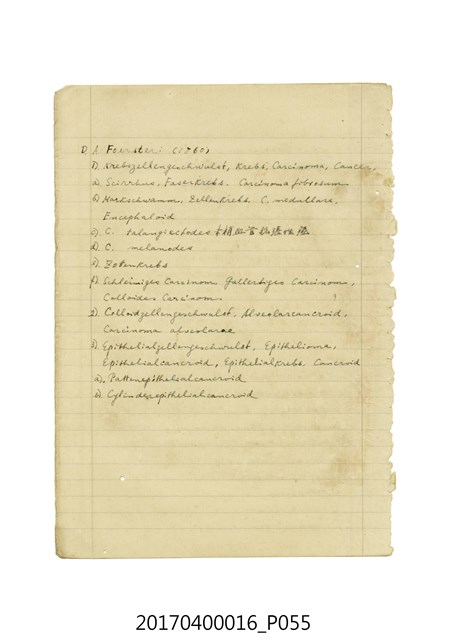 D. A. Foerster: (1860)
1). Krebszellengeschwulst, Krebs, Carcinoma, Cancer,
a). Scirrhus, Faserkrebs. Carcinoma fibrosum
b). Markschwamm, Zellenkrebs. C. medullare,
Encephaloid
c). C. talangiectodes
d). C. melanodes
e). Zotenkrebs
f). Schleimiges Carcinom. Gallertiges Carcinoma,
Colloides Carcinom
2). Colloidzellengeschwulst, Alveolarcancroid,
Carcinoma alveolarae
3). Epithelialzellengeschwulst, Epithelioma,
Epithelialcancroid, Epithelialkrebs, Cancroid
a). Pattenepithelialcancroid
b). Cylinderepithelialcancroid
20170400016_P055